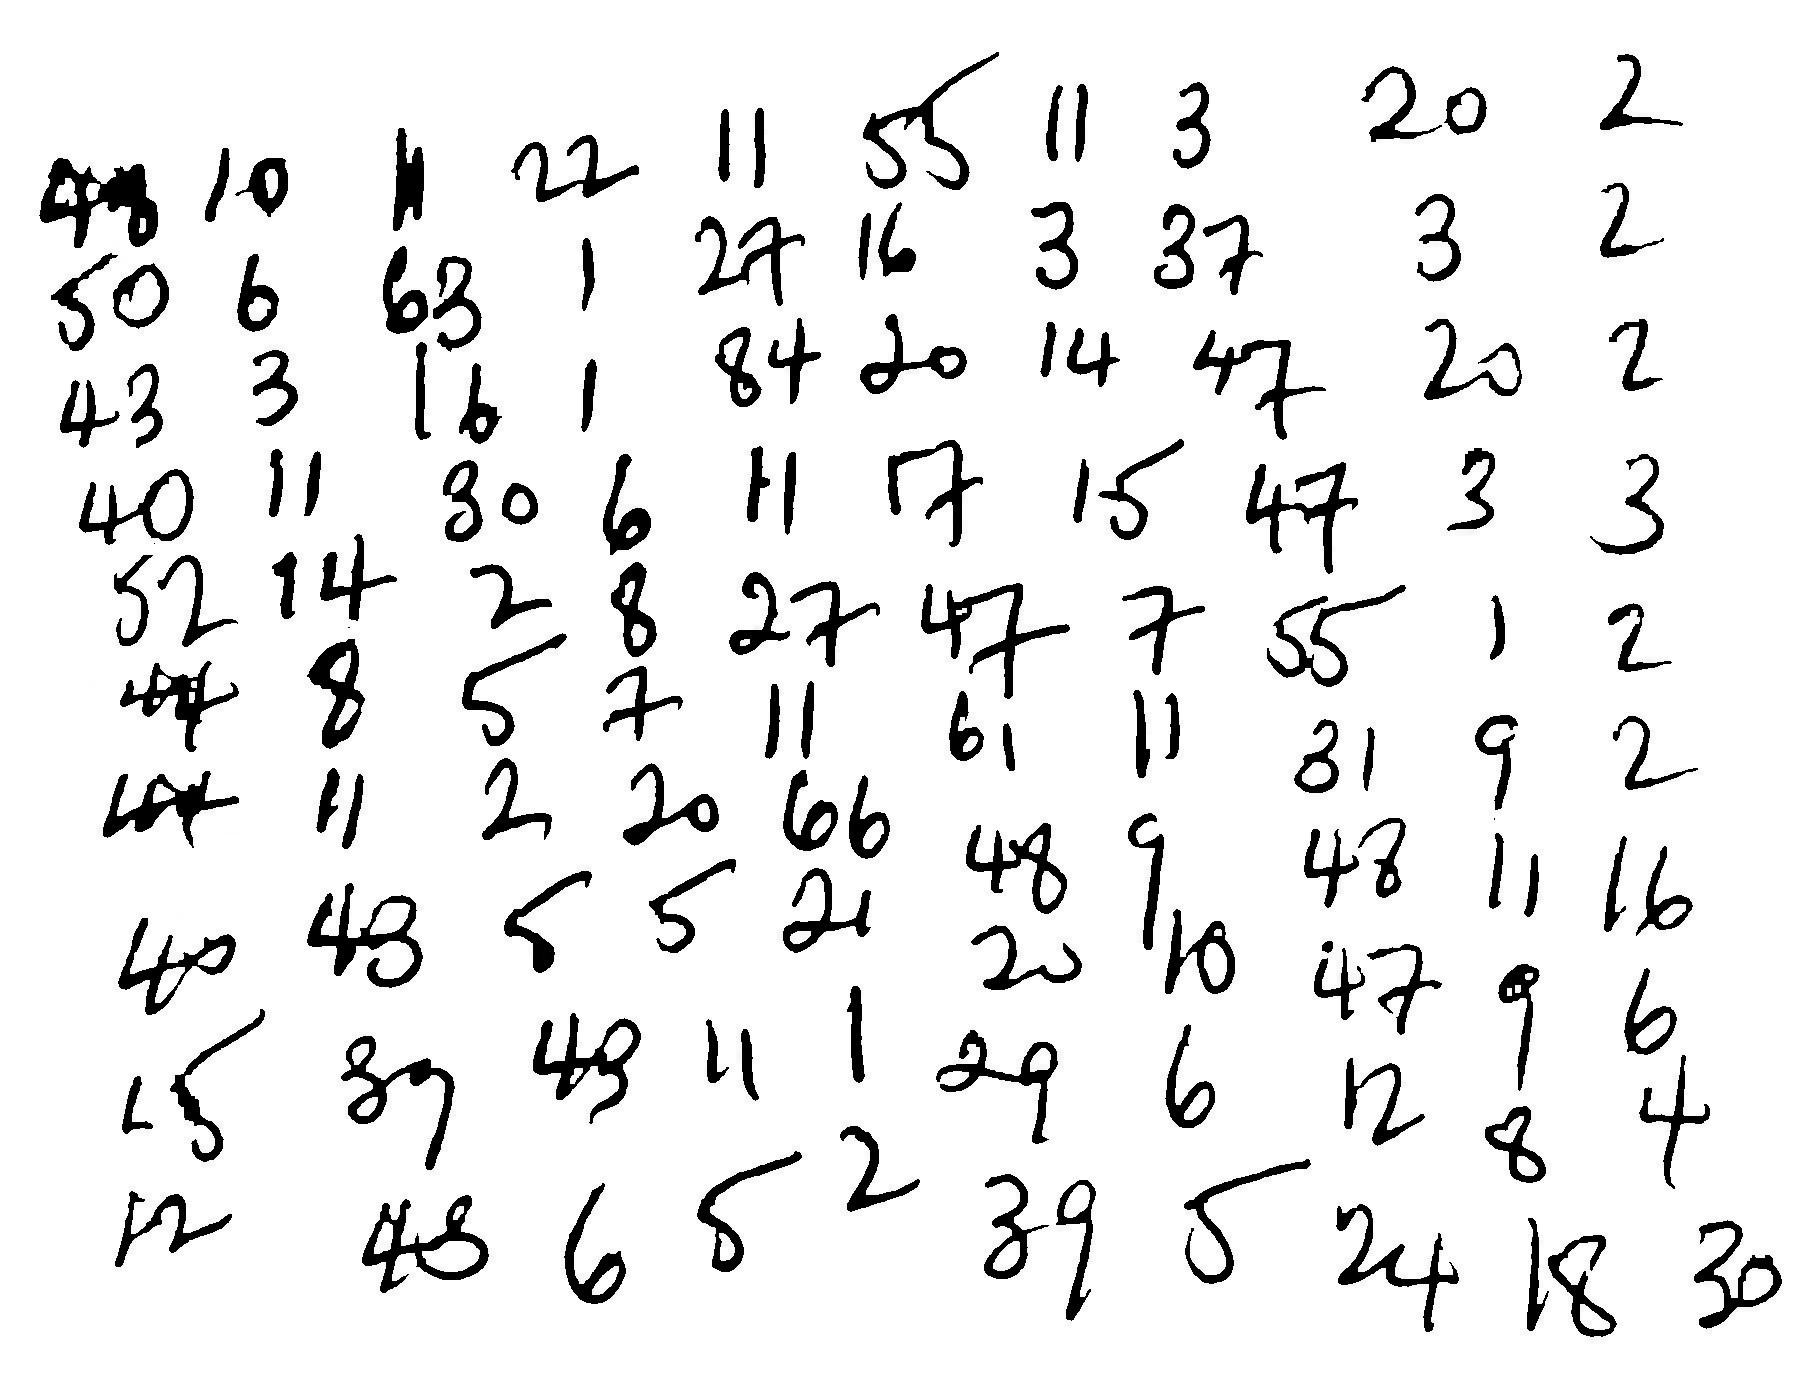 48 10 11 22 11 55 11 3 20 2
50 6 63 1 27 16 3 37 3 2
43 3 16 1 84 20 14 47 20 2
40 11 30 6 11 17 15 47 3 3
52 14 2 8 27 47 7 55 1 2
44 8 5 7 11 61 11 31 9 2
44 11 2 20 66 48 9 48 11 16
40 43 5 5 21 20 10 47 9 6
15 39 43 11 1 29 6 12 8 4
12 48 6 5 2 39 5 24 18 30